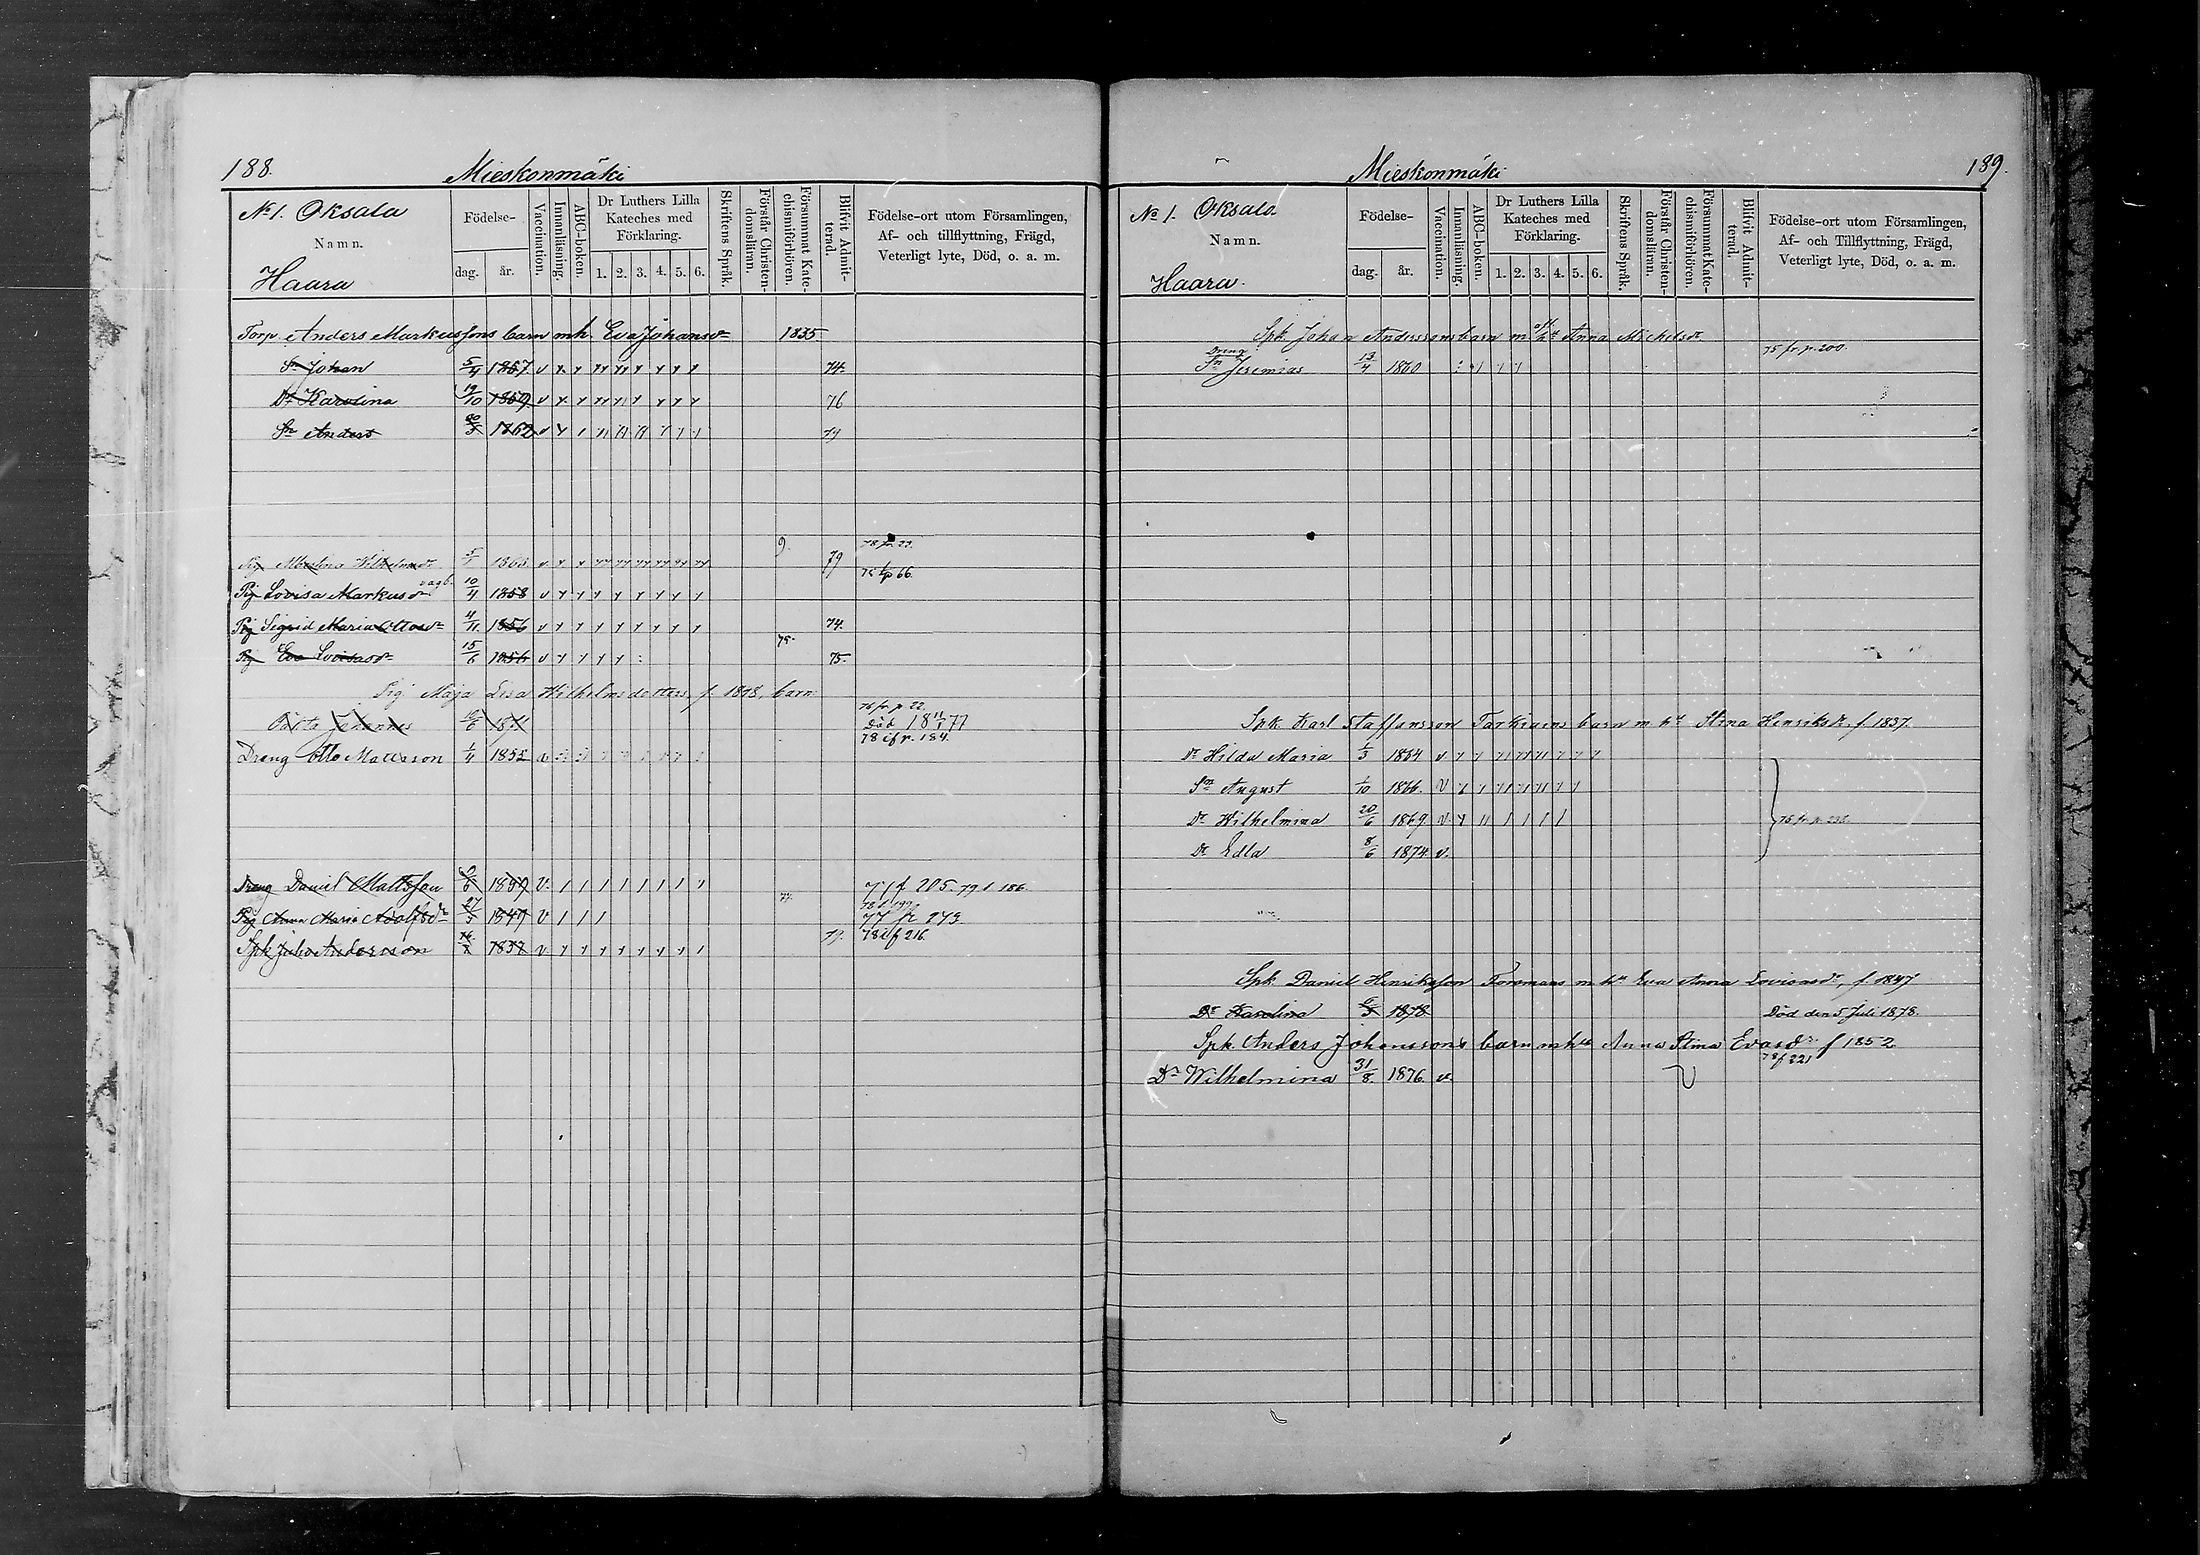 188.
Mieskonmäki
No 1. Oksala
Namn.
Haara
Födelse-
dag. år.
Vaccination.
Innanläsning.
ABC-boken.
Dr Luthers Lilla
Kateches med
Förklaring.
1. 2. 3. 4. 5. 6.
Skriftens Språk.
Förstår Christen-
domsläran.
Försummat Kate-
chismiförhören.
Blifvit Admit-
terad.
Födelse-ort utom Församlingen,
Af- och tillflyttning, Frägd,
Veterligt lyte, Död, o. a. m.
Torp. Anders Markussons barn m h. Eva Johansdr 1835
Sn Johan 5/4 1857 v 74.
Dr Karolina 19/10 1859 v 76
Sn Anders 1862 v 79
9. 78 fr 22.
Pig Wilhelmsdr 5/1 1863 v 79
Pig Lovisa Markusdr vagb. 10/4 1858 v 66.
Pig Sigrid Maria Ottosdr 4/11 1856 v 74.
75.
Pig Eva Lovisasdr 15/6 1856 v 75.
Pig Maja Lisa Wilhelmsdotters, f. 1848, barn
76 fr p. 22.
Oäkta Johannes 1871 död 18 11/1 77
78 if p. 184.
Dräng Otto Mattsson 1/4 1852 v
Dräng Daniel Mattsson 1859 v. 77 f 205. 79 t 186
77.
Pig Anna Maria Adolfsdr 27/3 1849 v 77 fr 273
Spk Juho Andersson 1857 v 79. 78 if 216.
189.
Mieskonmäki
No 1. Oksala
Namn.
Haara.
Födelse-
dag. år.
Vaccination.
Innanläsning.
ABC-boken.
Dr Luthers Lilla
Kateches med
Förklaring.
1. 2. 3. 4. 5. 6.
Skriftens Språk.
Förstår Christen-
domsläran.
Försummat Kate-
chismiförhören.
Blifvit Admit-
terad.
Födelse-ort utom Församlingen,
Af- och Tillflyttning, Frägd,
Veterligt lyte, Död, o. a. m.
Spk. Johan Anderssons barn m Anna Michelsdr
75 fr p. 200.
Dreng
Sn Jeremias 13/4 1860
Spk. Karl Staffansson Tarkiains barn m hu Stina Henriksdr, f. 1837.
Dr Hilda Maria 1/3 1864 v
Sn August 1/10 1866. v
Dr Wilhelmina 20/6 1869 v 75 fr p.
Dr Edla 8/6 1874 v.
Spk. Daniel Henriksson Toromans m hu Eva Anna Lovisasdr, f. 1847
Dr Karolina 1878 Död den 5 Juli 1878.
Spk. Anders Johanssons barn m hu Anna Stina Evasdr f 1852
78 f 221
Dr Wilhelmina 31/8 1876 v.